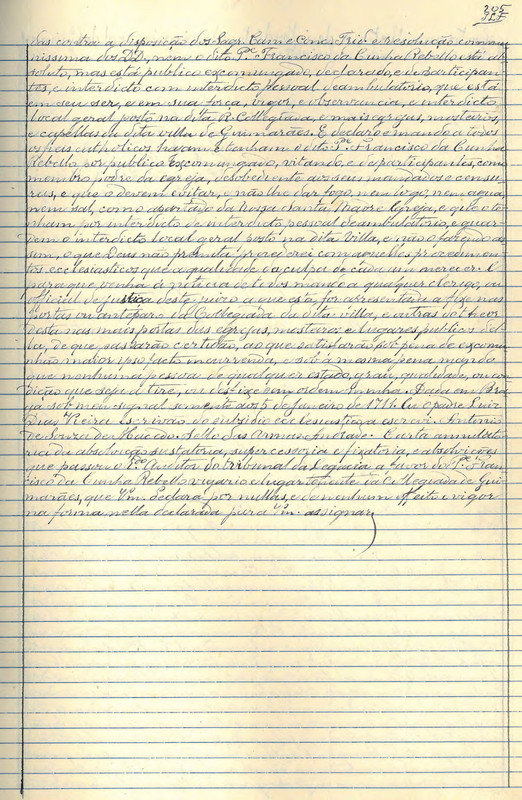 205
das contra a disposição dos Sagr. Can. e Conc. Trid. e resolução commu
nissima dos DD., nem o dito Pe Francisco da Cunha Rebello está ab
soluto, mas está publico excomungado, declarado, e de participan
tes, e interdicto com interdicto pessoal deambulatorio, que está
em seu ser, e em sua força, vigor, e observancia, e interdicto
local geral posto na dita R. Collegiada, e mais egrejas, mosteiros,
e capellas da dita villa de Guimarães. E declaro e mando a todos
os fieis catholicos hajam e tenham o dito Pe Francisco da Cunha
Rebello por publico excomungado, vitando, e de participantes, como
membro podre da egreja, desobediente aos seus mandados e censu
ras, e que o devem evitar, e não lhe dar fogo, nem logo, nem agua,
nem sal, como apartado da Nossa Santa Madre Egreja, e que o te
nham por interdicto de interdicto pessoal deambulatorio, e guar
dem o interdicto local geral posto na dita Villa, e não o fazendo as
sim, o que Deus não permita, procederei com aquelles procedimen
tos ecclesiasticos que a qualidade da culpa de cada um merecer. E
para que venha á noticia de todos mando a qualquer clerigo, ou
official de justiça deste juizo a que esta for apresentada a fixe nas
portas ou antaparo da Collegiada da dita villa, e outras do theor
desta nas mais portas das egrejas, mosteiros e lugares publicos del
la, de que passarão certidão, ao que satisfarão sob pena de excomu
nhão maior ipso facto incurrenda, e sob a mesma pena mando
que nenhuma pessoa de qualquer estado, grau, qualidade, ou con
dição que seja a tire, ou desfixe sem ordem minha. Dada em Bra
ga sob meu signal somente aos 5 de Janeiro de 1715. Eu o padre Luiz
Dias Vieira escrivão do subsidio ecclesiastico a escrevi. Antonio
de Souza de Macedo. Sello das Armas. Andrade. Carta annullato
ria da absolvição
que passou o Auditor do tribunal da Legacia a favor do Pe Fran
cisco da Cunha Rebello vigario e lugartenente da Collegiada de Gui
marães, que Vm. declara por nullas, e de nenhum effeito e vigor
na forma nella declarada para Vm. assignar